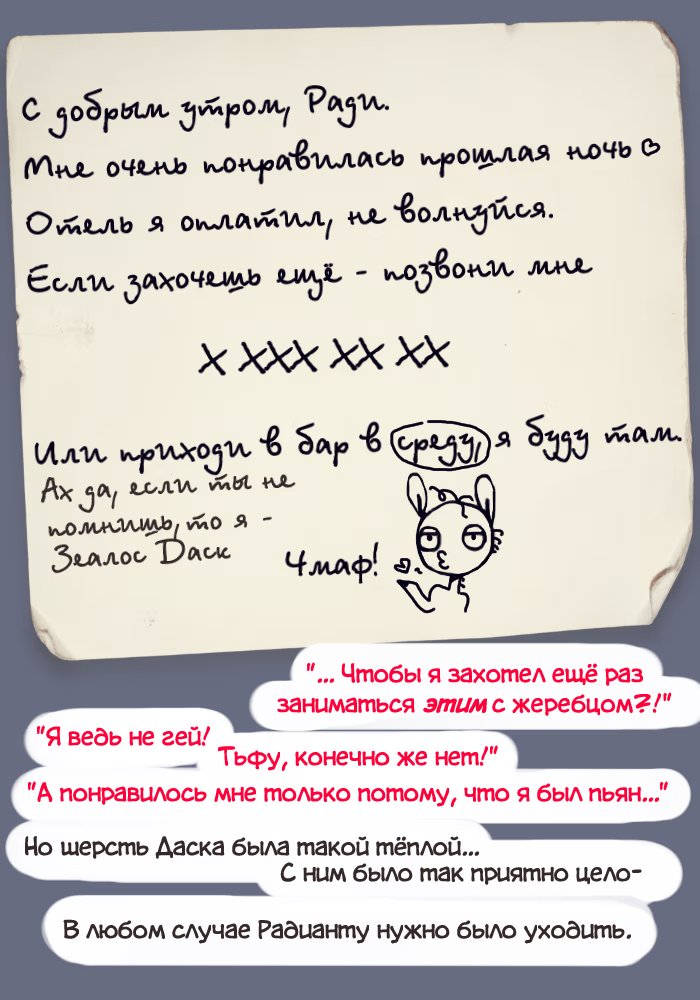 С добрым утром, Ради.
Мне очень понравилась прошлая ночь
Отель я оплатил, не волнуйся.
Если захочешь ещё - позвони мне
X XXX XX XX
Или приходи в бар в среду, я буду там.
Ах да, если ты не
помнишь, то я -
Зеалос Даск
Чмаф!
"... Чтобы я захотел ещё раз
заниматься этим с жеребцом?!"
"Я ведь не гей!
Тьфу, конечно же нет!"
"А понравилось мне только потому, что я был пьян..."
Но шерсть Даска была такой тёплой...
С ним было так приятно цело-
В любом случае Радианту нужно было уходить.